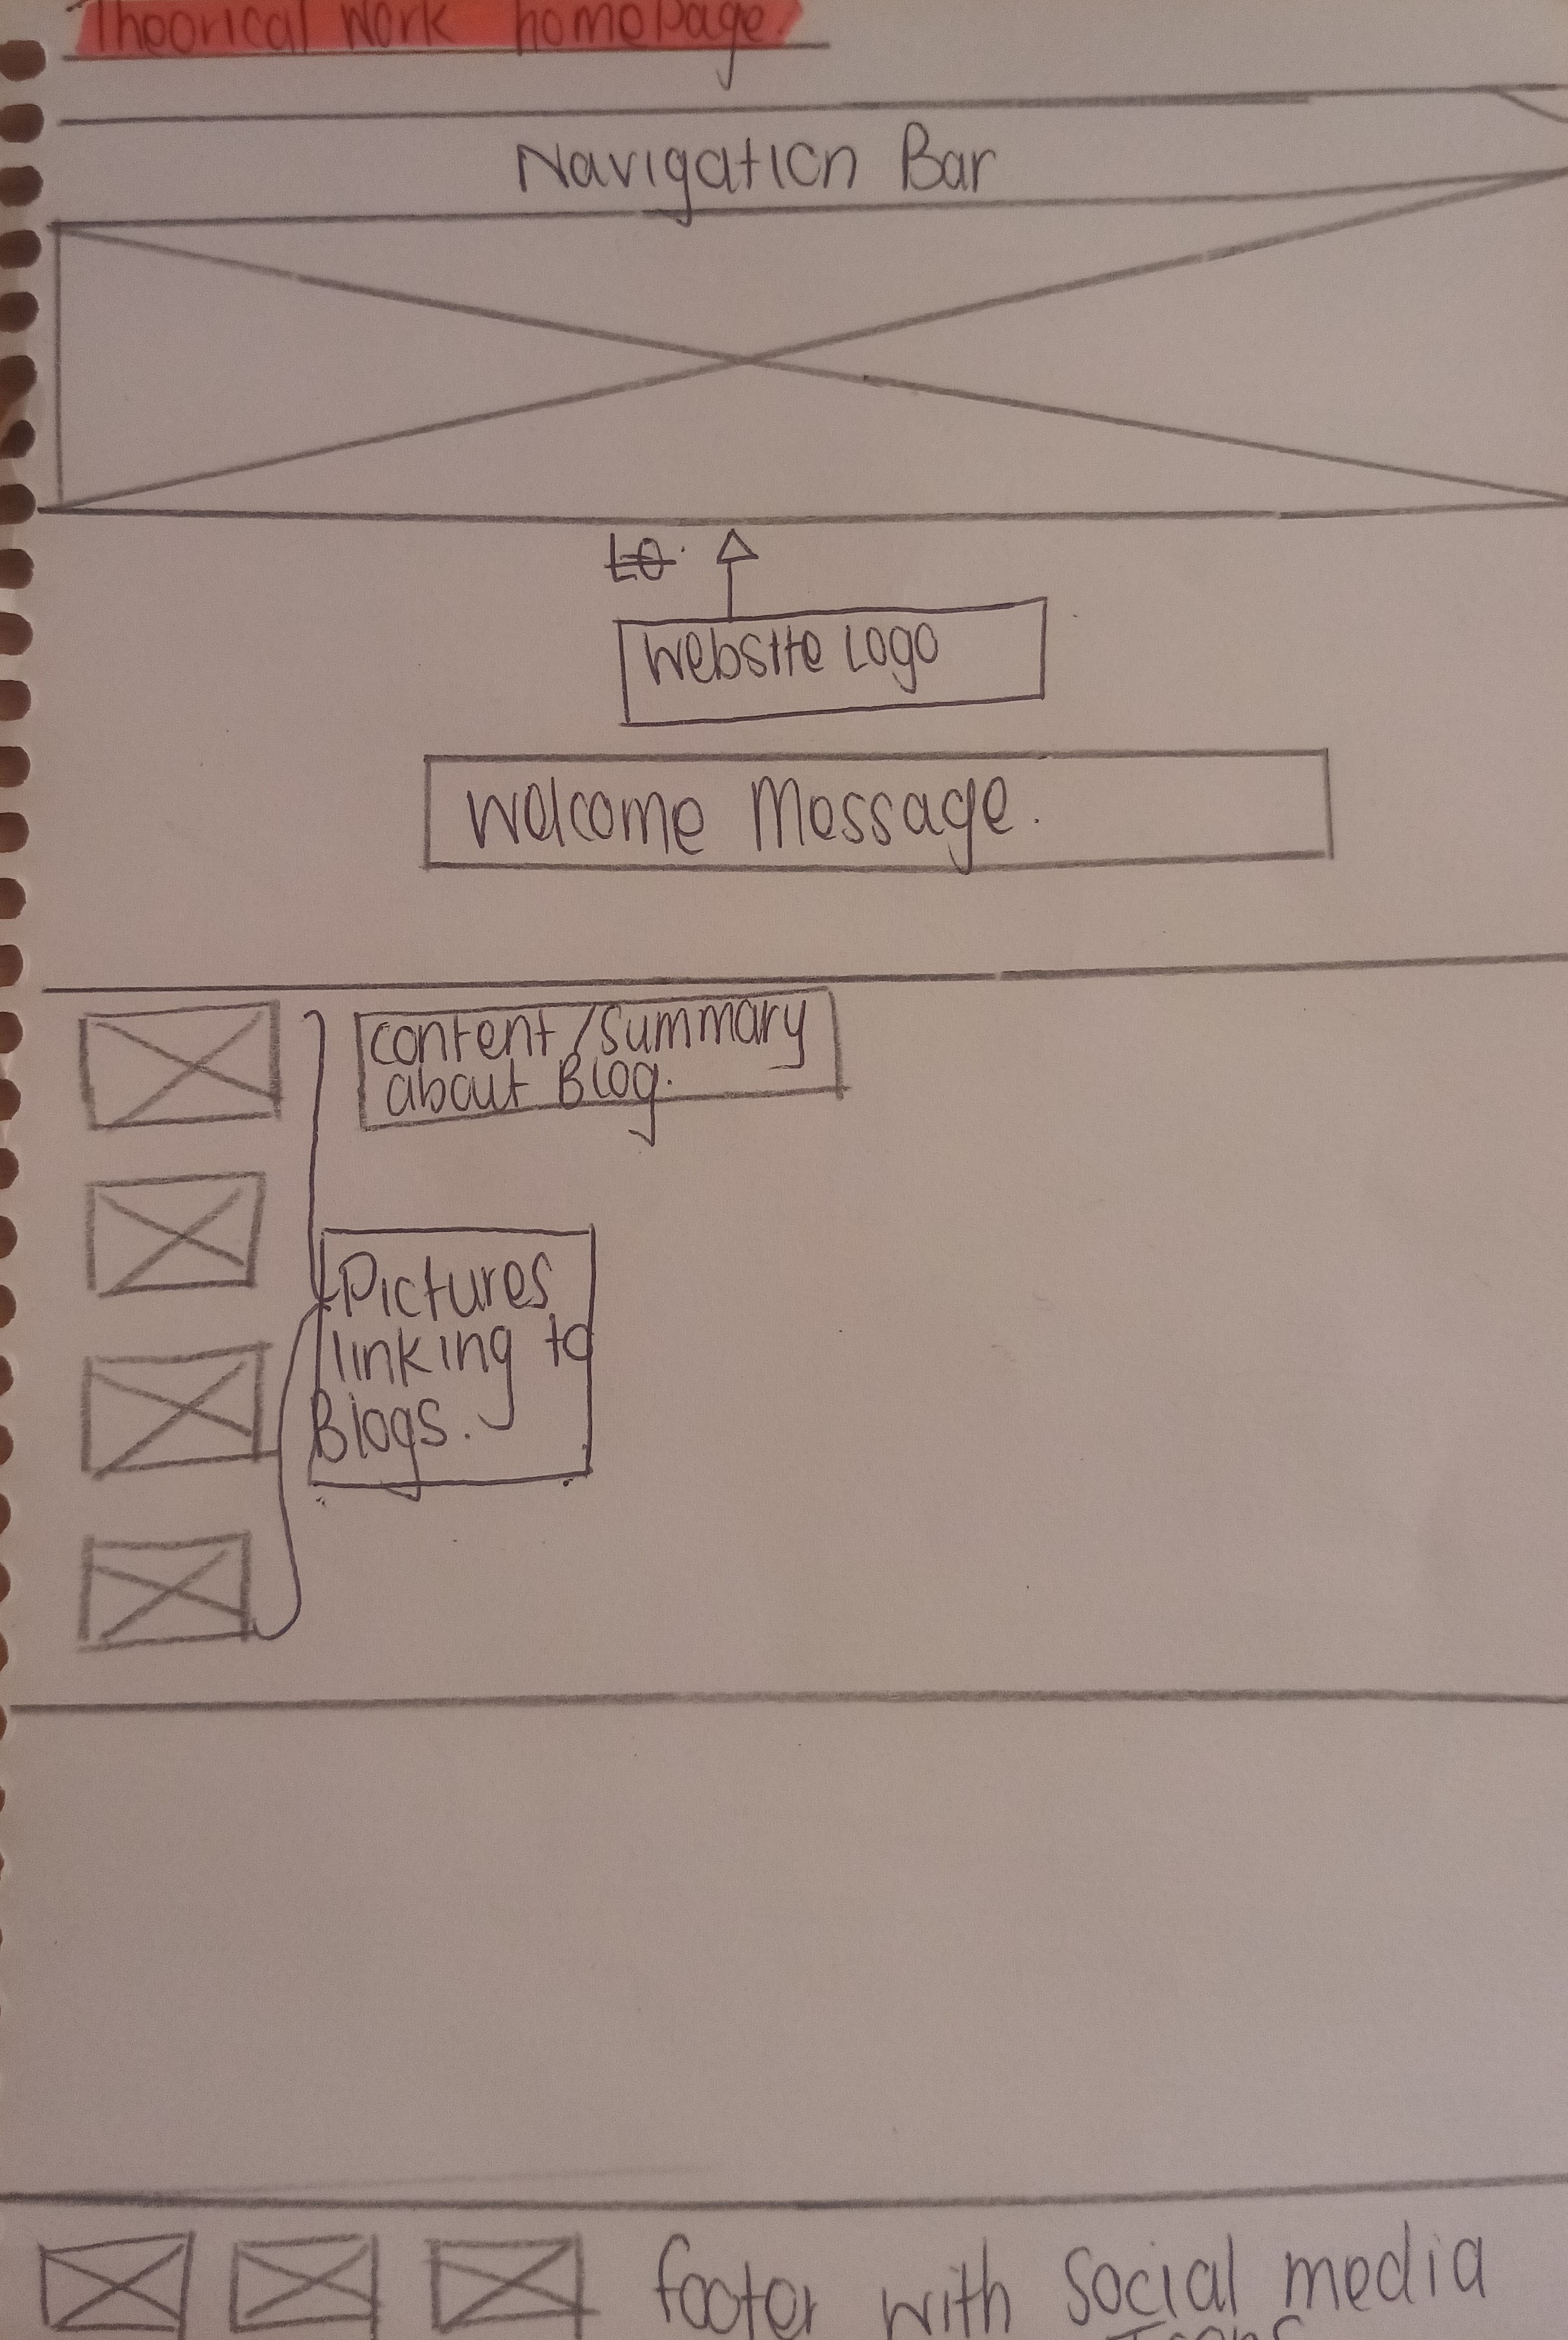 Theorical Work homepage.
Navigation Bar
Lo.
Website Logo
Welcome Message.
content/summary
about Blog.
Pictures
linking to
Blogs.
footer with Social media
Icons